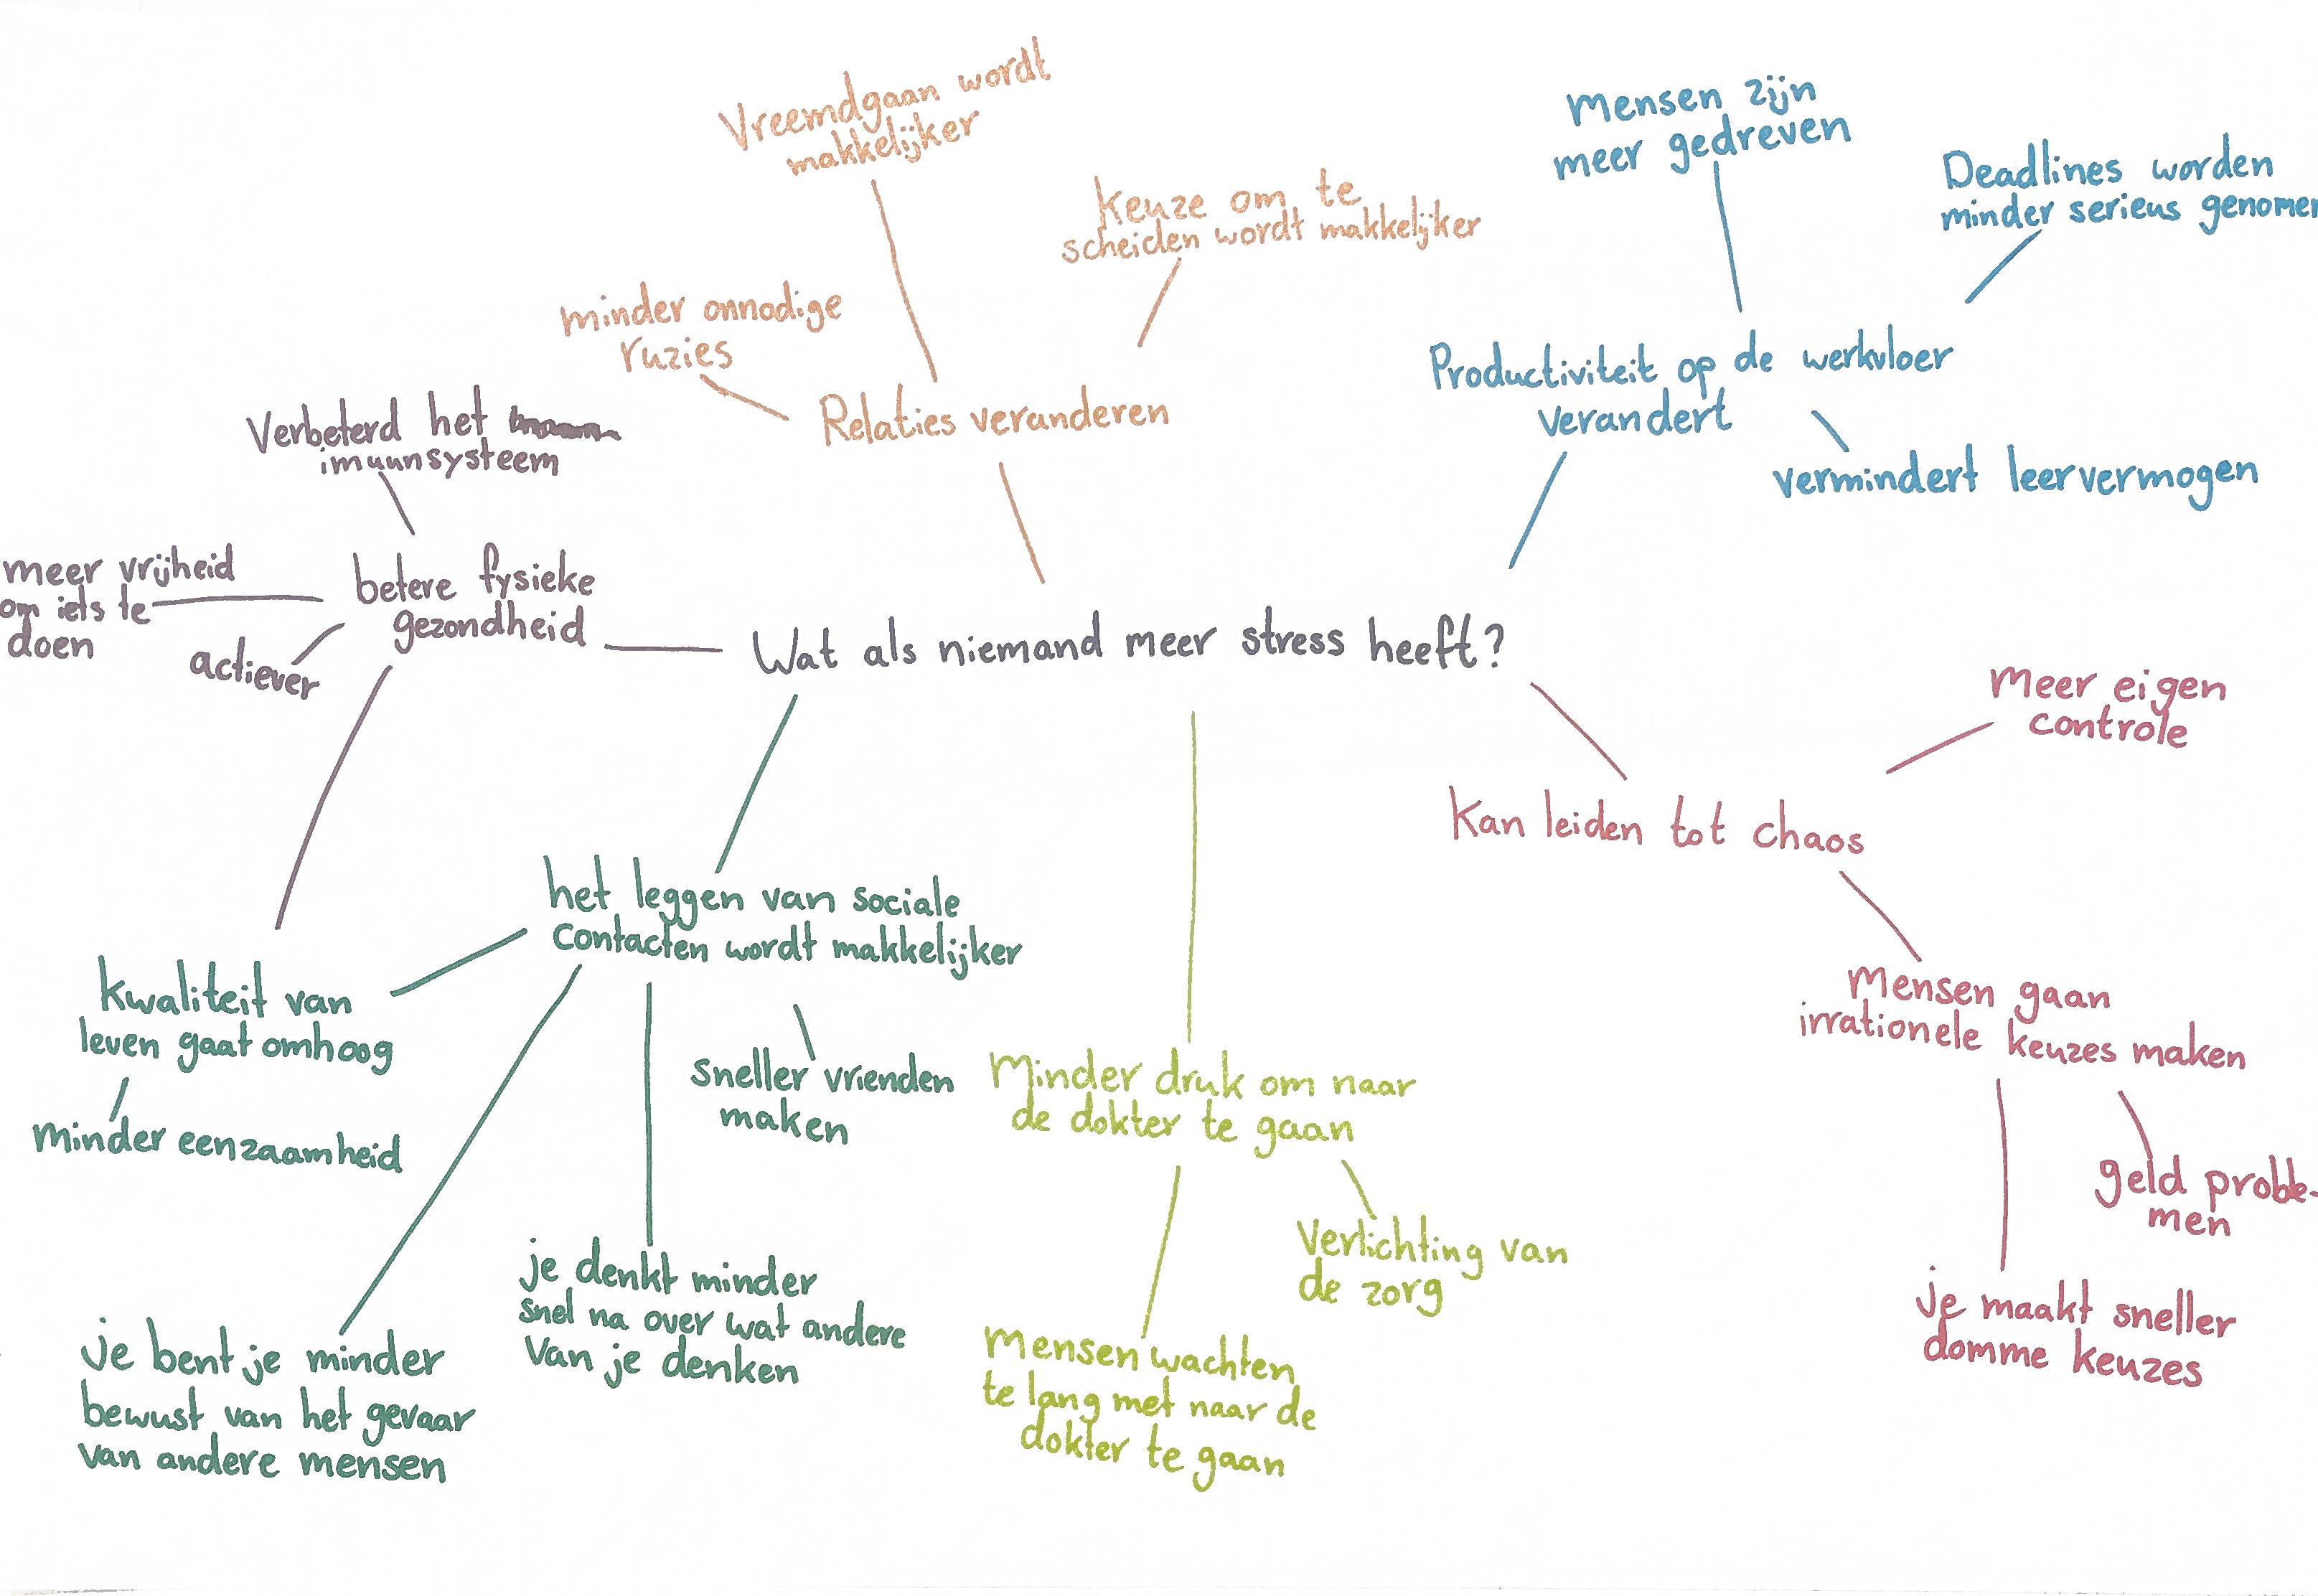 Vreemdgaan wordt
makkelijker
keuze om te
scheiden wordt makkelijker
minder onnodige
ruzies
Relaties veranderen
Mensen zijn
meer gedreven
Deadlines worden
minder serieus genomen
Productiviteit op de werkvloer
verandert
vermindert leervermogen
Verbeterd het
imuunsysteem
meer vrijheid
om iets te
doen
actiever
betere fysieke
gezondheid
Wat als niemand meer stress heeft?
Meer eigen
controle
Kan leiden tot chaos
Mensen gaan
irrationele keuzes maken
geld proble-
men
je maakt sneller
domme keuzes
het leggen van sociale
contacten wordt makkelijker
kwaliteit van
leven gaat omhoog
minder eenzaamheid
sneller vrienden
maken
je denkt minder
snel na over wat andere
van je denken
je bent je minder
bewust van het gevaar
van andere mensen
Minder druk om naar
de dokter te gaan
Verlichting van
de zorg
Mensen wachten
te lang met naar de
dokter te gaan